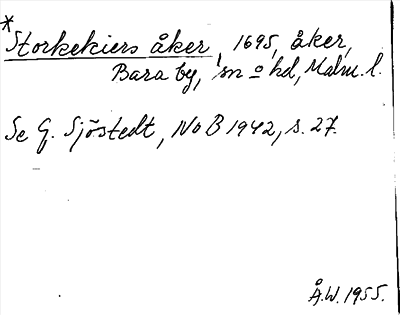 *
Storkekiers åker, 1695, åker,
Bara by, sn o hd, Malm. l.
Se G. Sjöstedt, NoB 1942, s. 27.
Å.W. 1955.